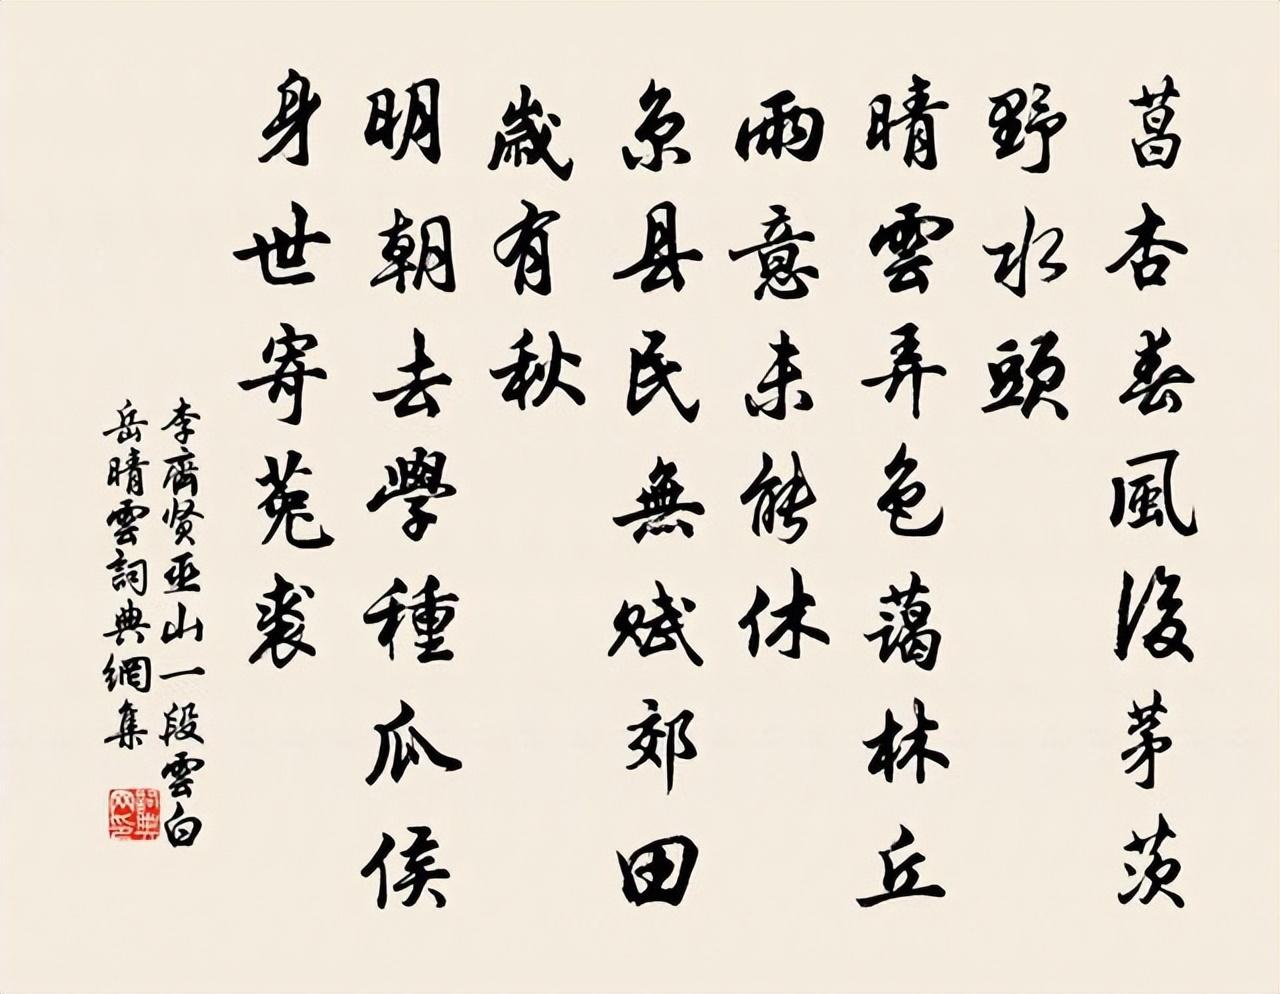 菖杏春風後茅茨
野水頭
晴雲弄色藹林丘
雨意未能休
京县民無賦郊田
歲有秋
明朝去學種瓜侯
身世寄菟裘
李齊贤巫山一段雲白
岳晴雲詞典網集
詞典
网印